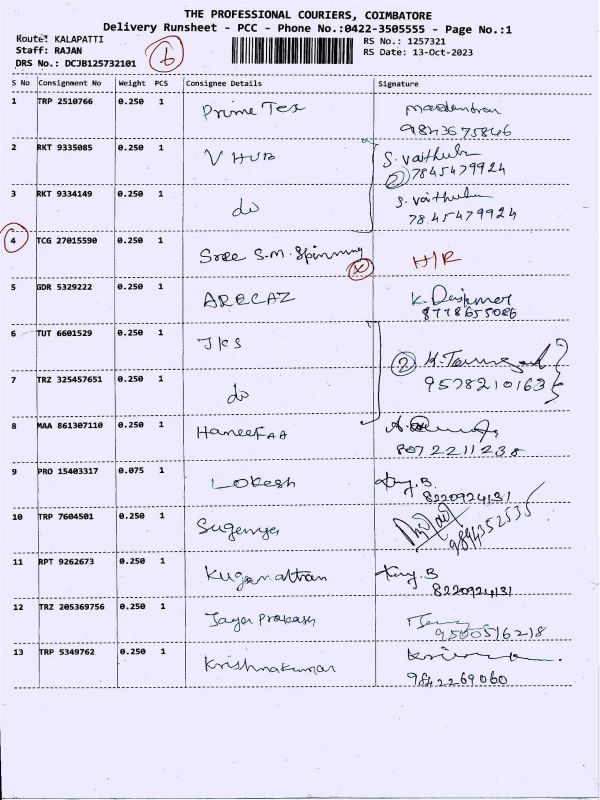 THE PROFESSIONAL COURIERS, COIMBATORE
Delivery Runsheet - PCC - Phone No.:0422-3505555 - Page No.:1
Route: KALAPATTI
RS No.: 1257321
Staff: RAJAN
RS Date: 13-Oct-2023
DRS No.: DCJB125732101
6
S No Consignment No Weight PCS Consignee Details Signature
1 TRP 2510766 0.250 1 Prime Tex
9843675846
2 RKT 9335085 0.250 1 V HUB S. Vaithu
2 7845479924
3 RKT 9334149 0.250 1 do S. Vaithu
7845479924
4 TCG 27015590 0.250 1 Sree S.M. Spinning H/R
5 GDR 5329222 0.250 1 ARECAZ K.
8778655086
6 TUT 6601529 0.250 1 JKS 2
7 TRZ 325457651 0.250 1 do 9578210163
8 MAA 861307110 0.250 1 HaneeFAA A.
8072211238
9 PRO 15403317 0.075 1 Lokesh B.
8220924131
10 TRP 7604501 0.250 1 Sugenya
9894352535
11 RPT 9262673 0.250 1 Kuganathan B
8220924131
12 TRZ 205369756 0.250 1 Jaya Prakash
9500516218
13 TRP 5349762 0.250 1 Krishnakumar
9842269060